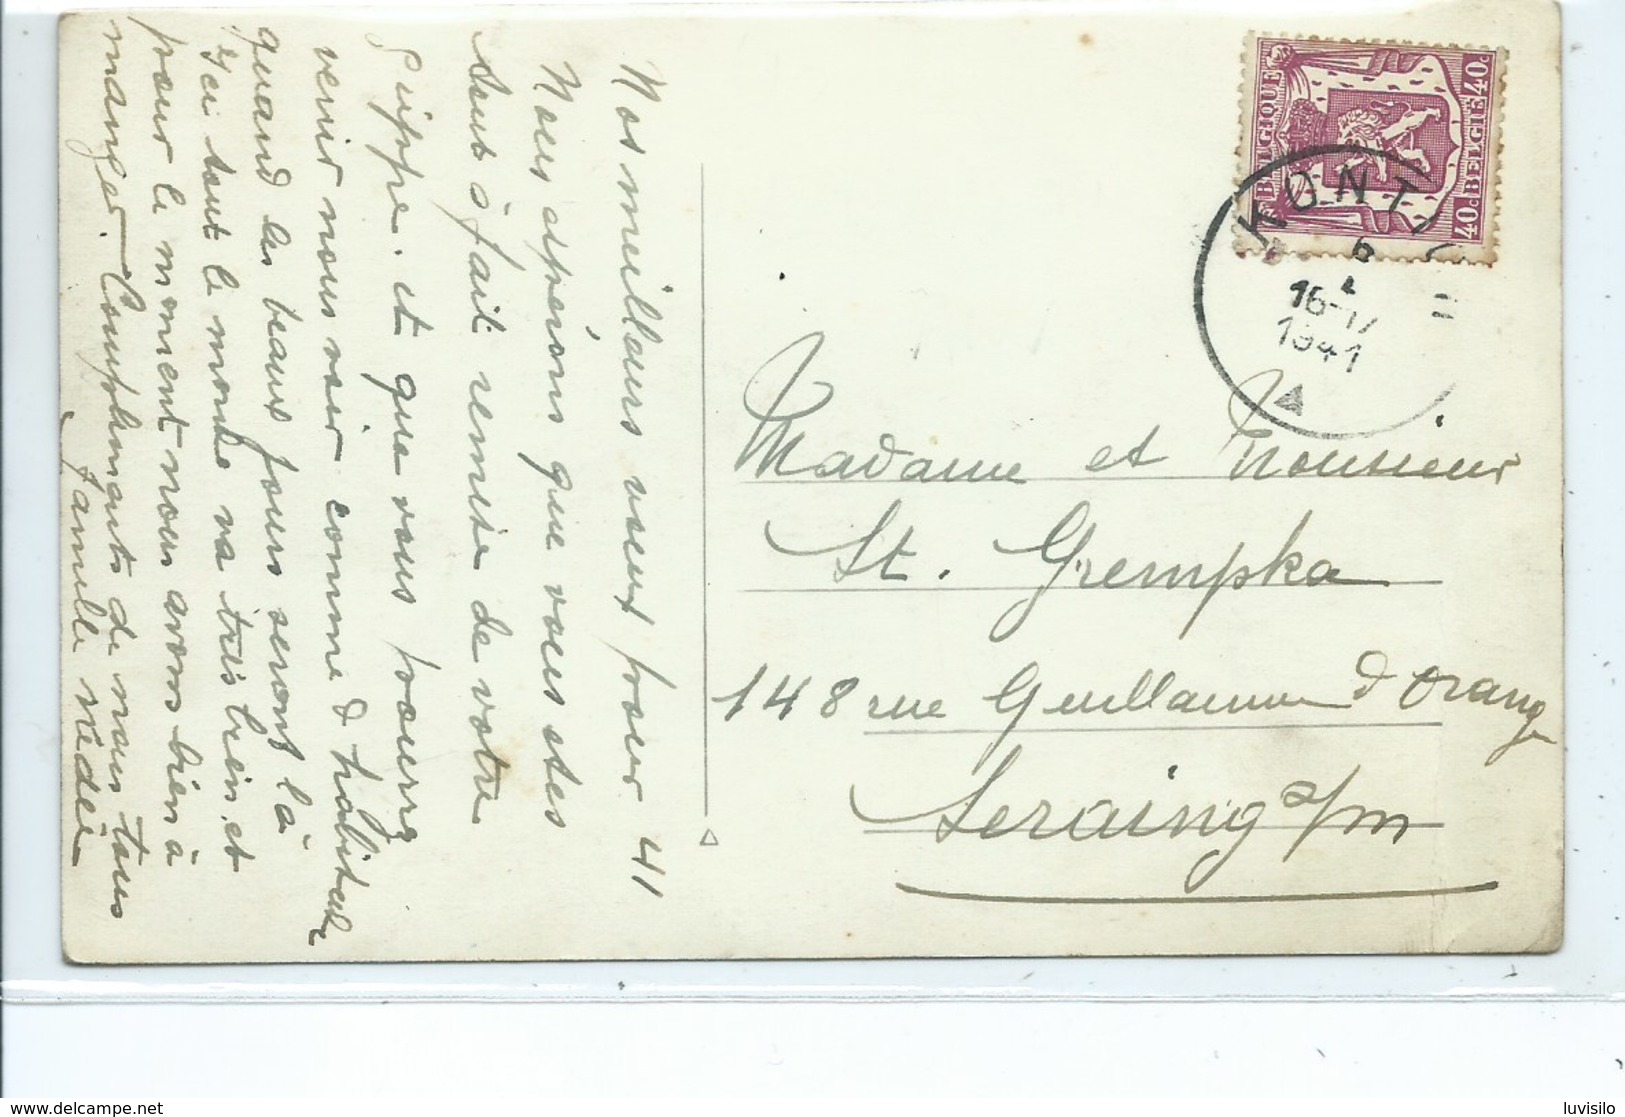 Nos meilleurs vœux pour 41
Nous espérons que vous êtes
tout à fait remise de votre
Grippe. et que vous pourrez
venir nous voir comme d'habitude
quand les beaux jours seront là
Ici tout le monde va très bien, et
pour le moment nous avons bien à
manger. Compliments de nous tous
famille
BELGIQUE 40c
40c BELGIË
KONT
6
16-17
1941
Madame et Monsieur
St. Grempka
148 rue Guillaume d'Orange
Seraing s/m
luvisilo